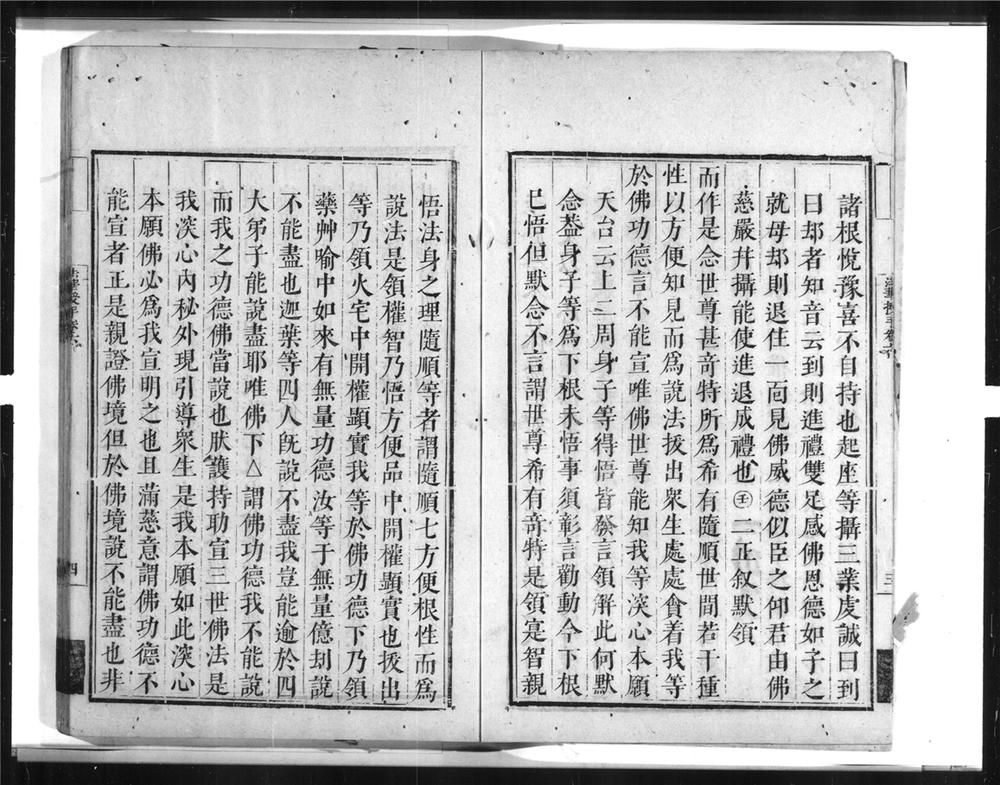 諸根悅豫喜不自持也起座等攝三業䖍誠曰到
曰却者知音云到則進禮雙足感佛恩德如子之
就母却則退住一靣見佛威德似臣之仰君由佛
慈嚴幷攝能使進退成禮也㊋二正叙默領
而作是念世尊甚竒特所爲希有隨順世間若干種
性以方便知見而爲說法拔出衆生處處貪着我等
於佛功德言不能宣唯佛世尊能知我等深心本願
天台云上二周身子等得悟皆發言領解此何默
念葢身子等爲下根未悟事須彰言勸動今下根
已悟但默念不言謂世尊希有竒特是領寔智親
三
悟法身之理隨順等者謂隨順七方便根性而爲
說法是領權智乃悟方便品中開權顯實也拔出
等乃領火宅中開權顯實我等於佛功德下乃領
藥艸喻中如來有無量功德汝等于無量億刧說
不能盡也迦葉等四人旣說不盡我豈能逾於四
大弟子能說盡耶唯佛下△謂佛功德我不能說
而我之功德佛當說也肰護持助宣三世佛法是
我深心內秘外現引導衆生是我本願如此深心
本願佛必爲我宣明之也且滿慈意謂佛功德不
能宣者正是親證佛境但於佛境說不能盡也非
四